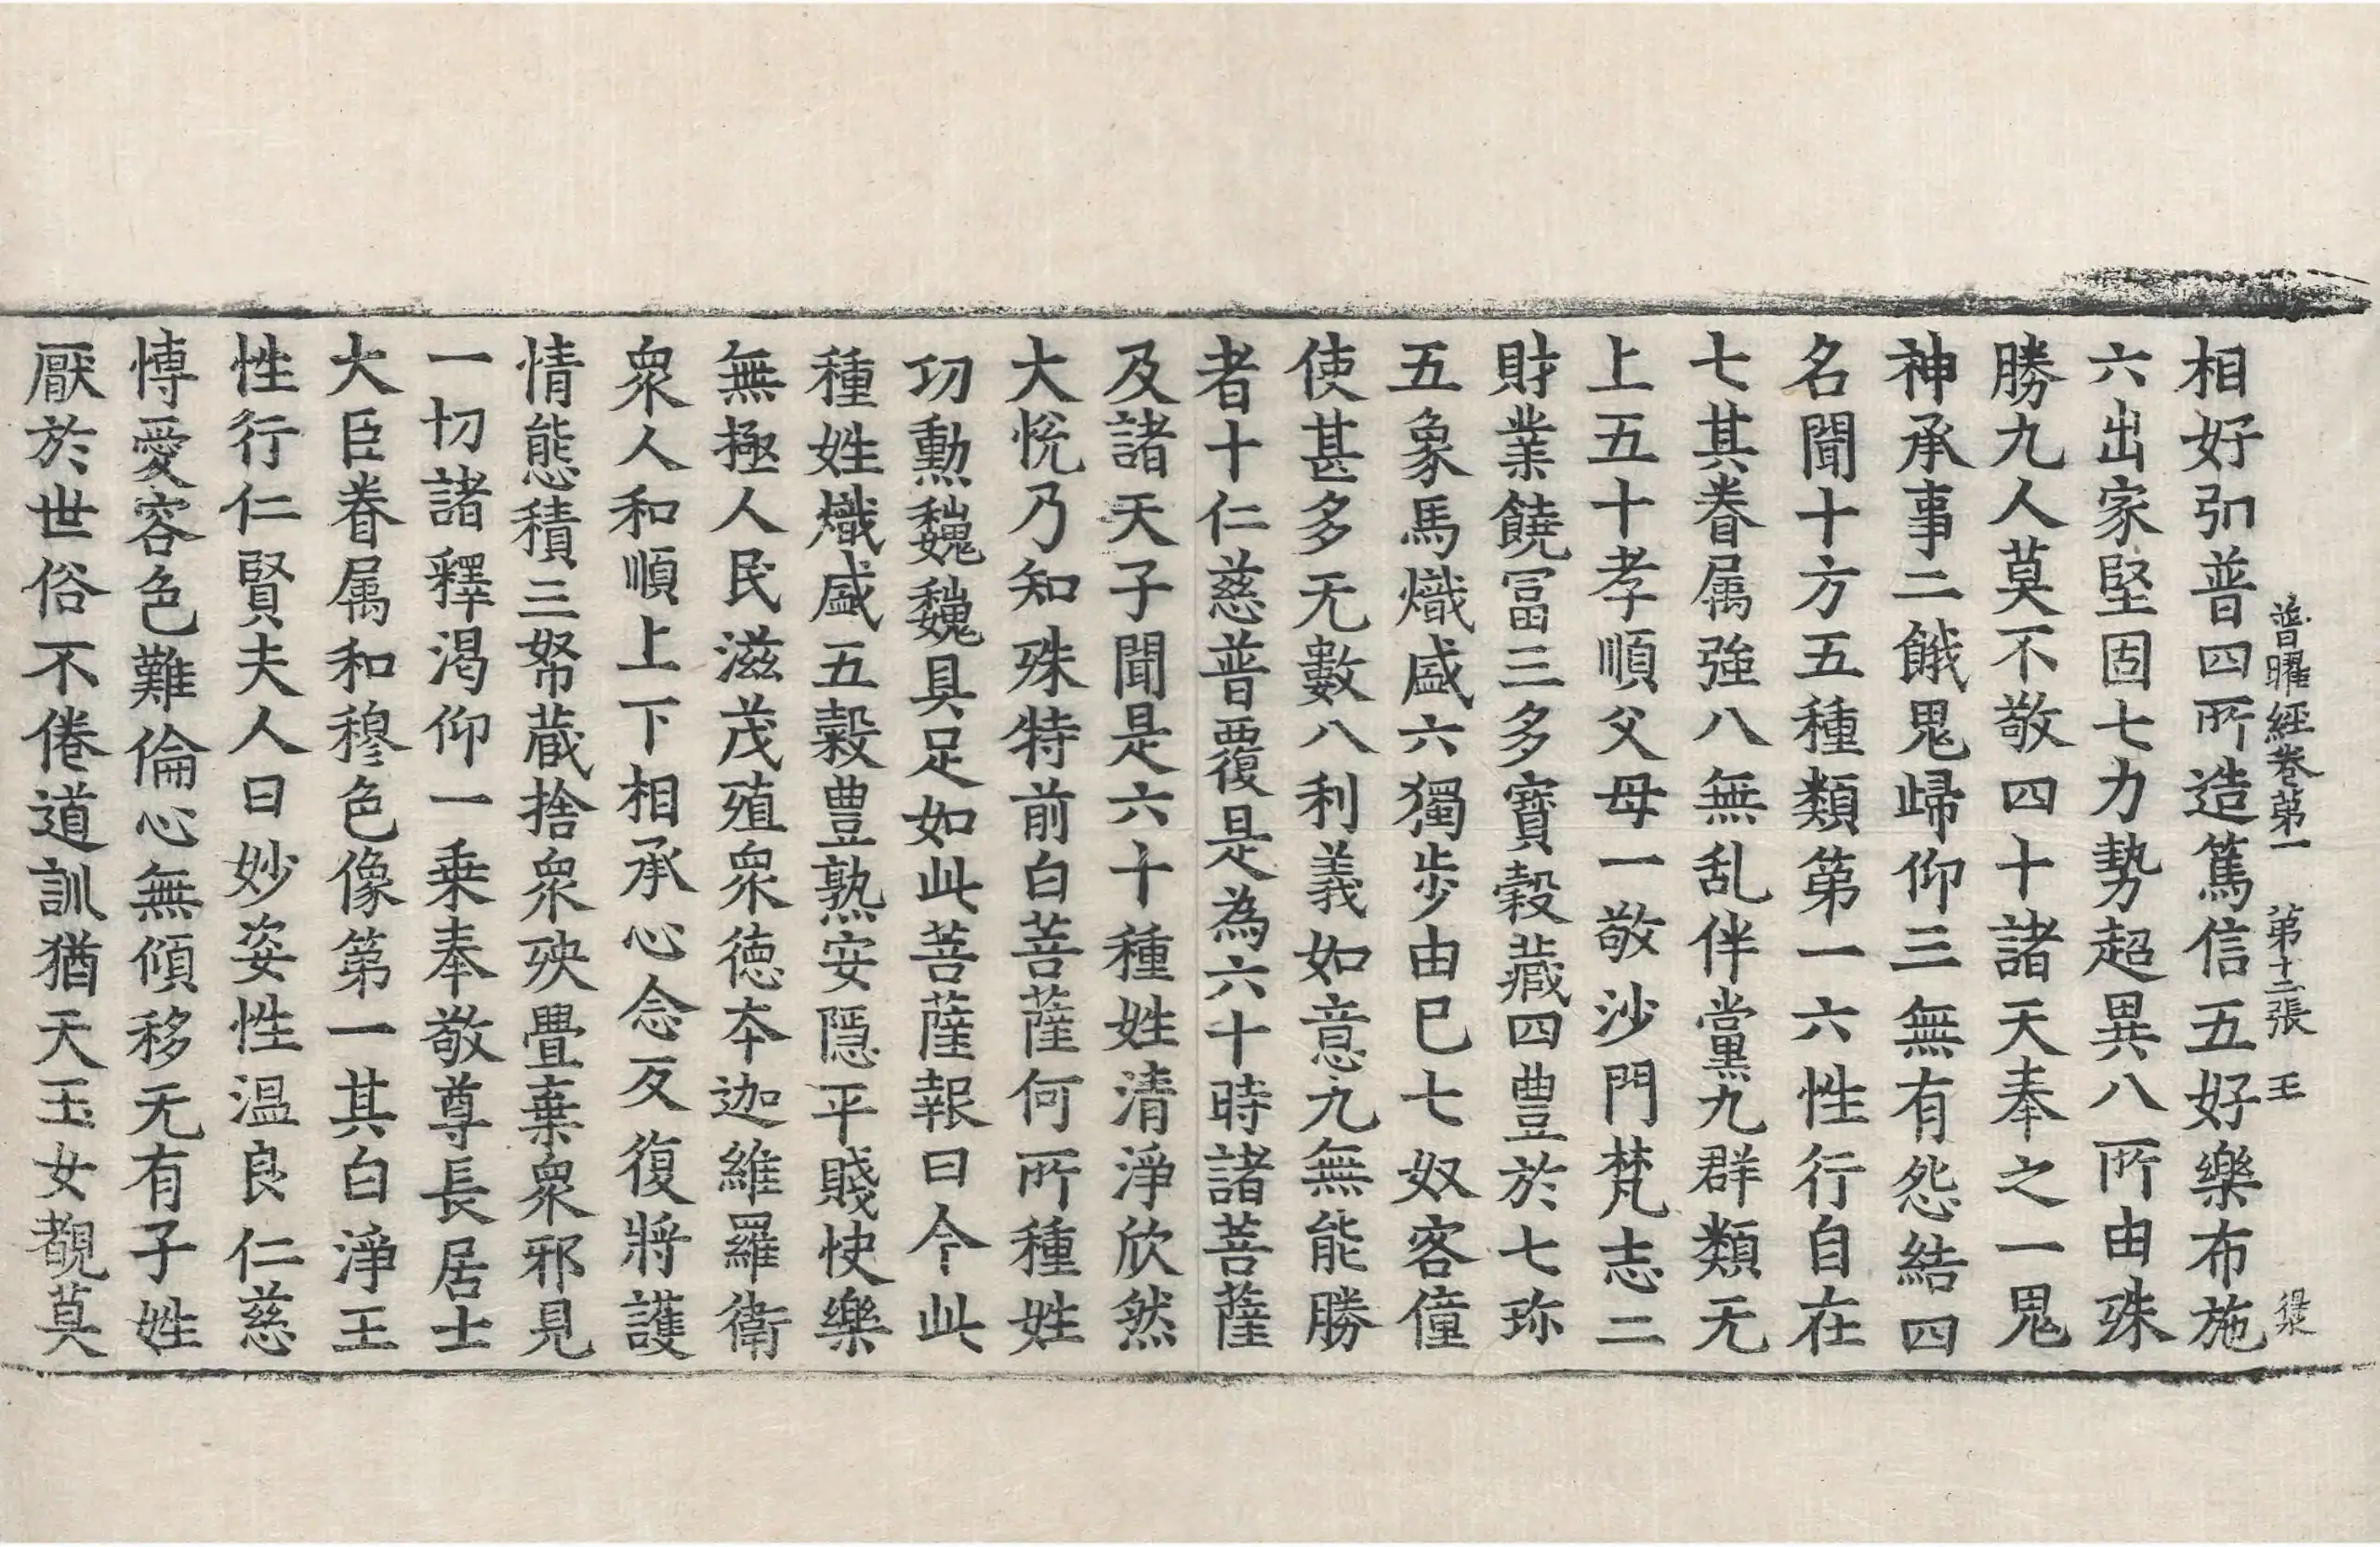 普曜經卷第一 第十二張 王
相好別普四所造篤信五好樂布施
六出家堅固七力勢超異八所由殊
勝九人莫不敬四十諸天奉之一鬼
神承事二餓鬼歸仰三無有怨結四
名聞十方五種類第一六性行自在
七其眷属強八無乱伴黨九群類无
上五十孝順父母一敬沙門梵志二
財業饒冨三多寶穀藏四豊於七珎
五象馬熾盛六獨步由已七奴客僮
使甚多无數八利義如意九無能勝
者十仁慈普覆是為六十時諸菩薩
及諸天子聞是六十種姓清淨欣然
大恱乃知殊特前白菩薩何所種姓
功勳巍巍具足如此菩薩報曰今此
種姓熾盛五穀豊熟安隠平賤快樂
無極人民滋茂殖衆徳夲迦維羅衛
衆人和順上下相承心念反復將護
情態積三帑蔵捨衆殃疊棄衆邪見
一切諸釋渴仰一乗奉敬尊長居士
大臣眷属和穆色像第一其白淨王
性行仁賢夫人曰妙姿性温良仁慈
愽愛容色難倫心無傾移无有子姓
厭於世俗不倦道訓猶天玉女覩莫